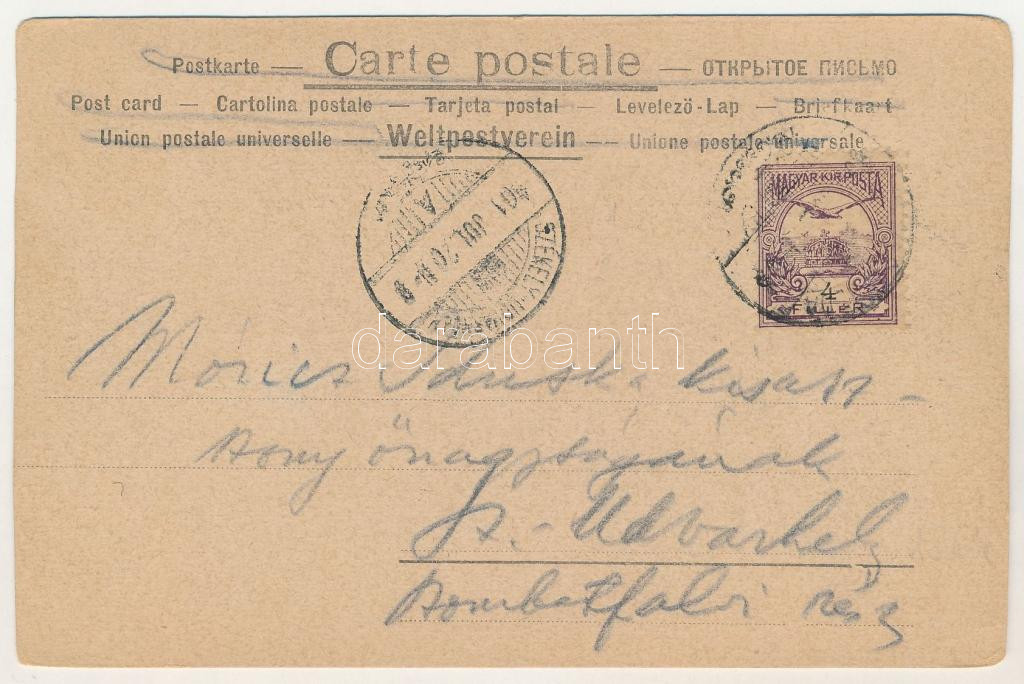 Carte postale
Postkarte — — ОТКРЫТОЕ ПИСЬМО
Post card — Cartolina postale — Tarjeta postal — Levelező-Lap — Briefkaart
Union postale universelle — Weltpostverein — Unione postale universale
MAGYAR·KIR·POSTA
4
FILLÉR
SZÉKELY-UDVARHELY
901 JUL. 20
darabanth
Móricz Juliska kisasz-
szony önagyságának
Sz.-Udvarhely
Szombatfalvi rész